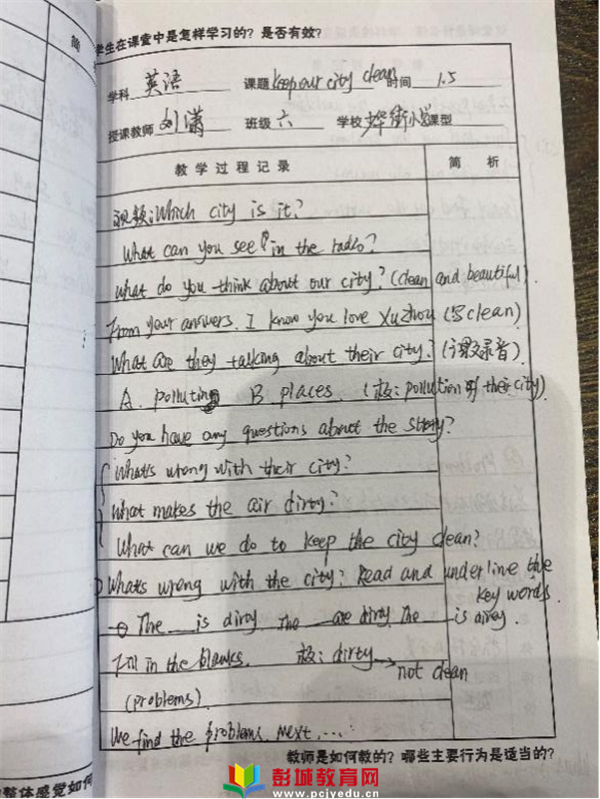 学生在课堂中是怎样学习的？是否有效？
简
学科 英语 课题 keep our city clean 时间 1.5
授课教师 刘潇 班级 六 学校 课型
教学过程记录 简析
视频:Which city is it?
What can you see? in the radio?
What do you think about our city? (clean and beautiful).
From your answers. I know you love Xuzhou (写clean)
What are they talking about their city? (课文录音)
A. pollution B places (板: pollution of their city)
Do you have any questions about the story?
What's wrong with their city?
What makes the air dirty?
What can we do to keep the city clean?
What's wrong with the city? Read and underline the key words.
The __ is dirty The __ are dirty. The __ is dirty.
Fill in the blanks. 板: dirty → not clean
(problems)
We find the problems. Next ....
教师是如何教的？哪些主要行为是适当的？
整体感觉如何
彭城教育网
www.pcjyedu.cn